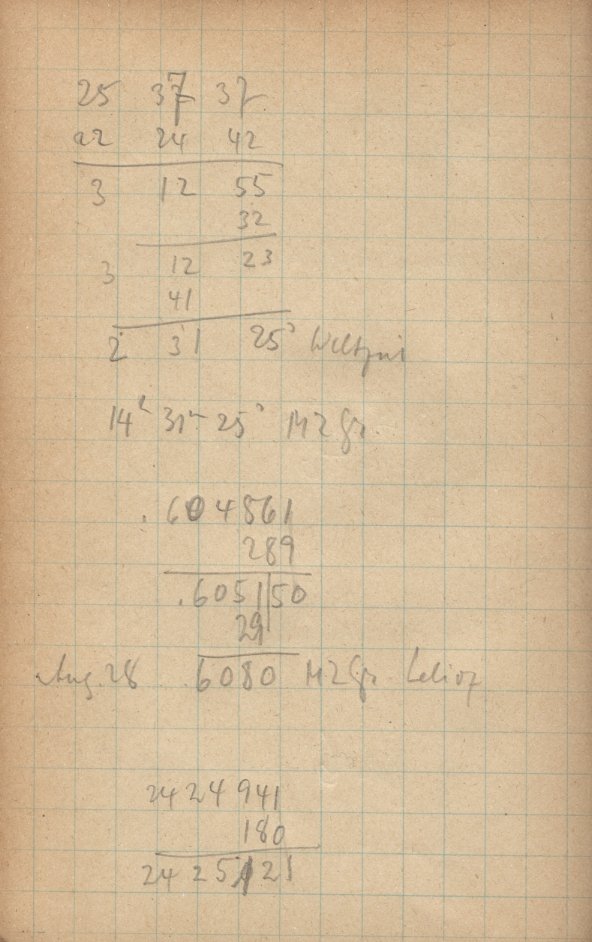 25 37 37
22 24 42
3 12 55
32
3 12 23
41
2 31 25ˢ Weltzeit
14ʰ 31ᵐ 25ˢ MZGr.
.604861
289
.6051|50
29
Aug. 28 .6080 MZGr. helioz
2424941
180
2425121